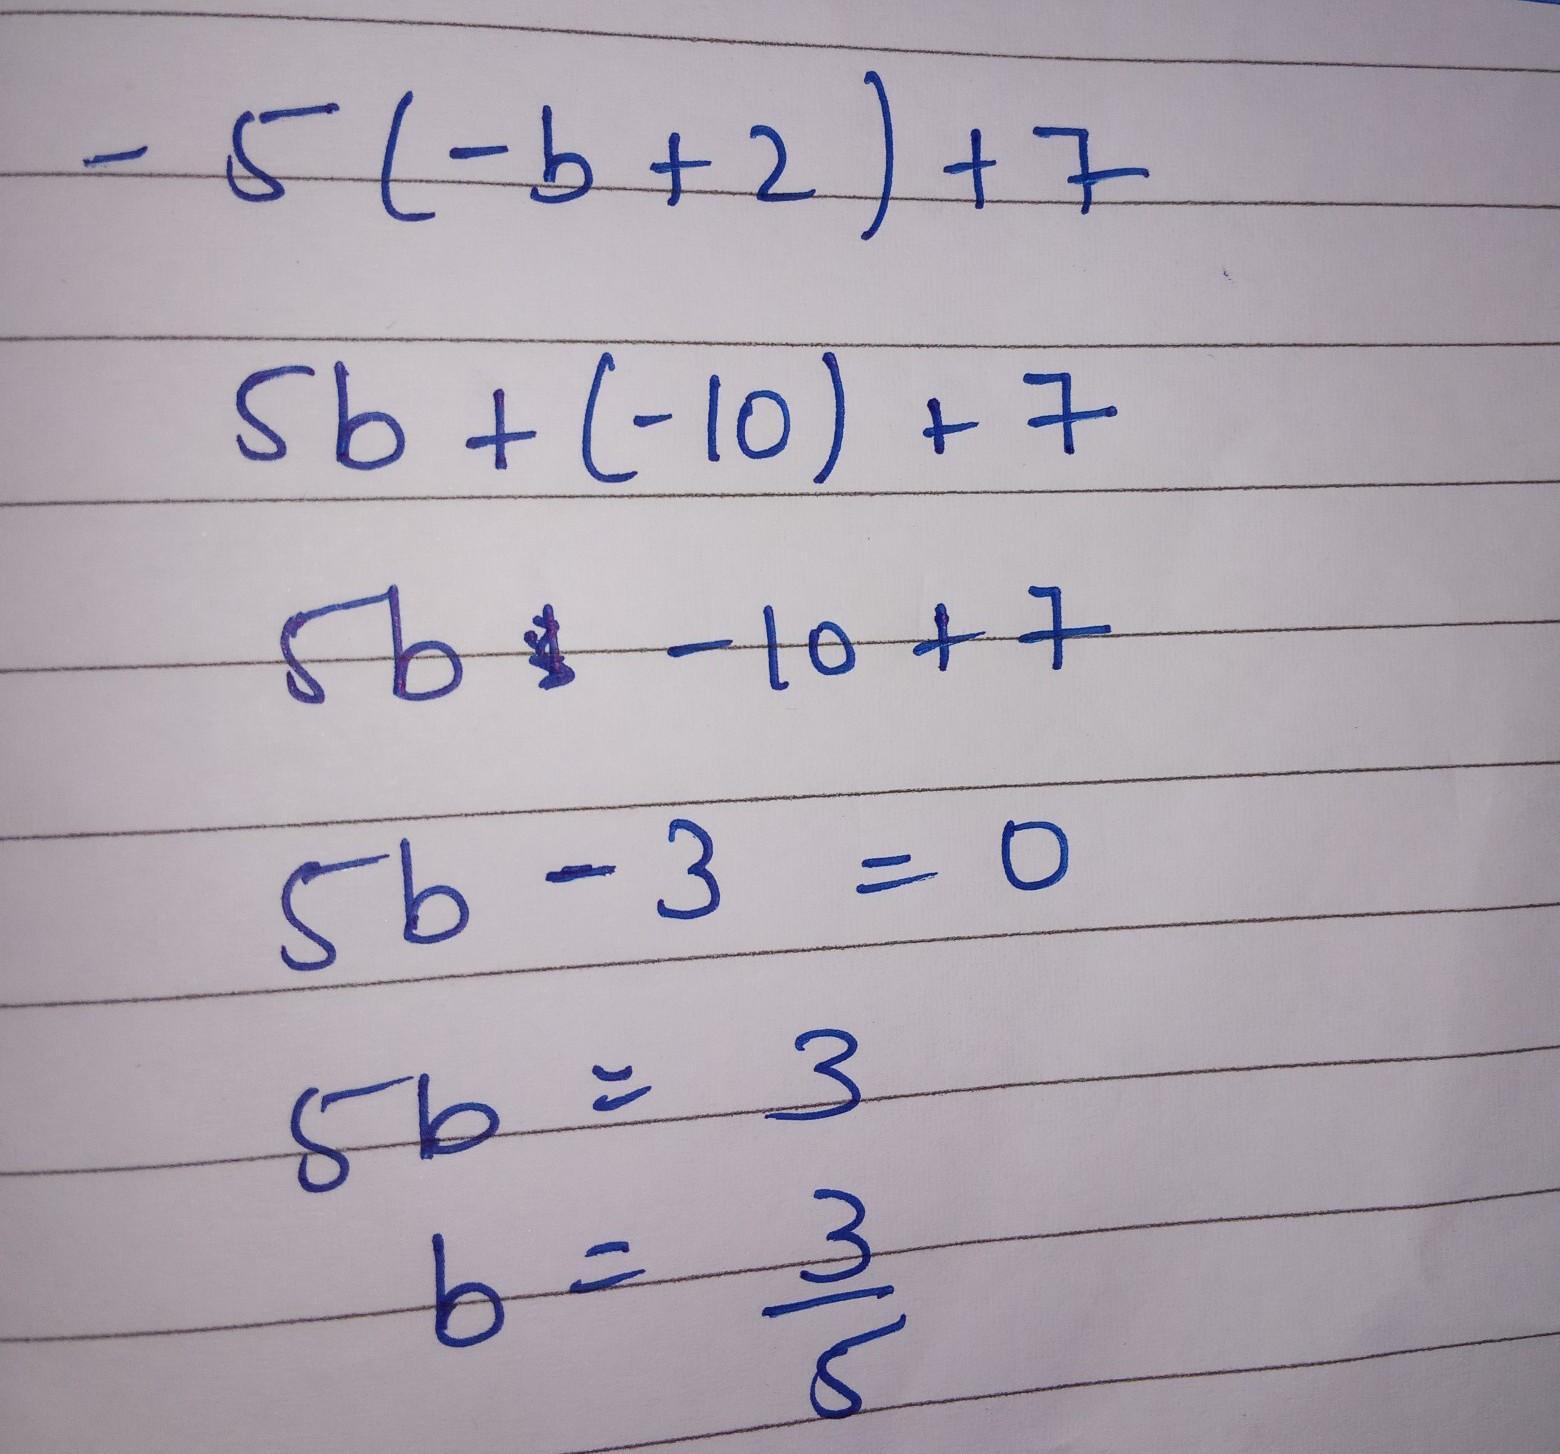 - 5 (-b + 2) + 7
5b + (-10) + 7
5b - 10 + 7
5b - 3 = 0
5b = 3
b = 3/5